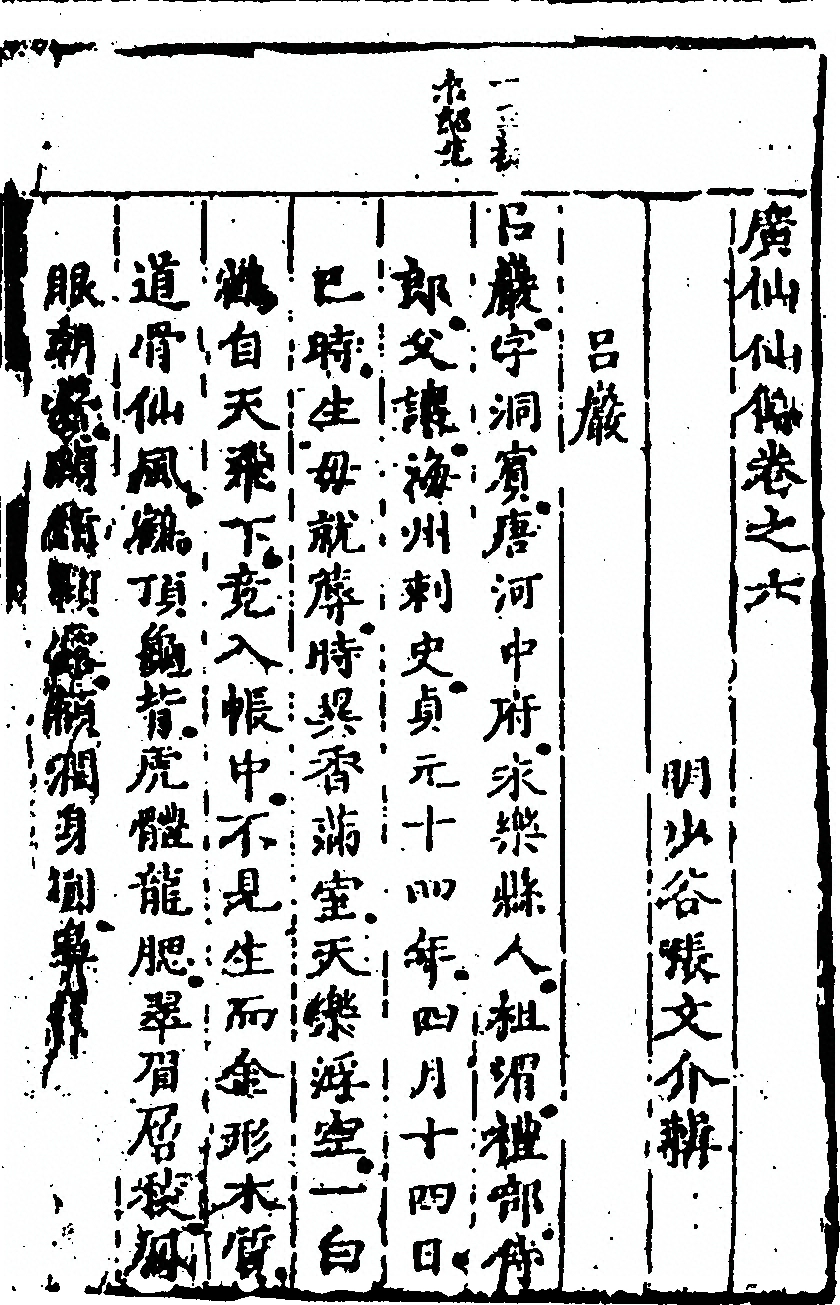 廣仙仙傳卷之六
明少谷張文介輯
呂巖
呂巖字洞賓唐河中府永樂縣人祖渭禮部侍
郎父讓海州刺史貞元十四年四月十四日
巳時生母就蓐時異香滿室天樂浮空一白
鶴自天飛下竟入帳中不見生而金形木質
道骨仙風鶴頂龜背虎體龍腮翠眉層稜鳳
眼朝鬢頸脩顴露額濶身圓鼻